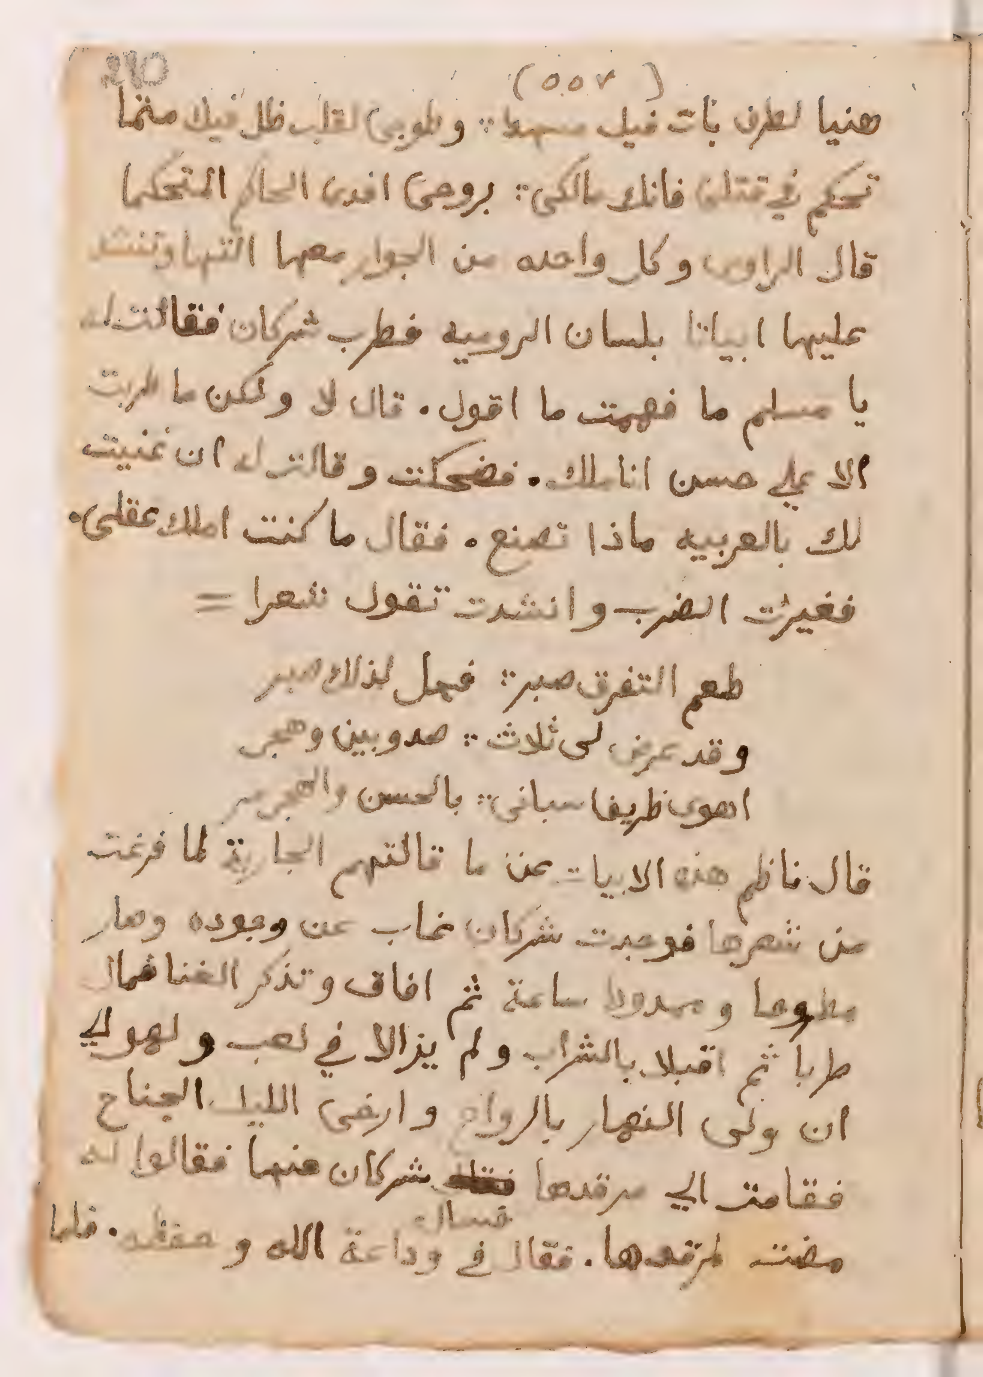 290
(٥٥٧)
هنيا لطرف بات فيك مسهدا ؛؛ وطوبى لقلب ظل فيك متيما
تحكم في قتلى فانك مالكى ؛؛ بروحى افدى الحاكم المتحكما
قال الراوى وكل واحده من الجوار معها التها وتنشد
عليها ابياتا بلسان الروميه فطرب شركان فقالت له
يا مسلم ما فهمت ما اقول. قال لا ولكن ما طربت
الا على حسن اناملك. فضحكت وقالت له ان غنيت
لك بالعربيه ماذا تصنع. فقال ما كنت املك عقلى.
فغيرت الضرب وانشدت تقول شعرا =
طعم التفرق صبر ؛؛ فهل لذلك صبر
وقد عرض لى ثلاث ؛؛ صد وبين وهجر
اهوى ظريفا سبانى ؛؛ بالحسن والهجر مر
قال ناظم هذه الابيات عن ما قالتهم الجارية لما فرغت
من شعرها فوجدت شركان غاب عن وجوده وصار
مطروحا وممدودا ساعة ثم افاق وتذكر الغنا فمال
طربا ثم اقبلا بالشراب ولم يزالا في لعب ولهو الي
ان ولى النهار بالرواح وارخى الليل الجناح
فقامت الي مرقدها شركان عنها فقالوا له
فسال
مضت لمرقدها. فقال في وداعة الله وحفظه. فلما